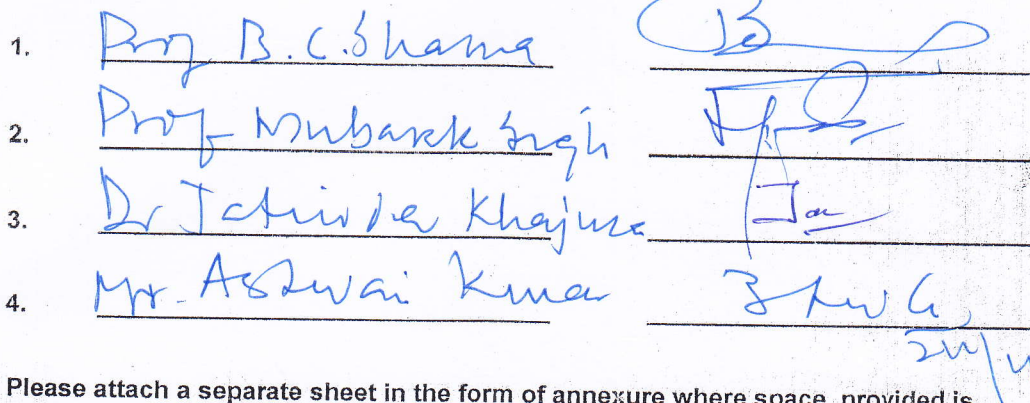 1. Prof B.C. Sharma
2. Prof Mubarak Singh
3. Dr Jatinder Khajuria
4. Mr. Ashwani Kumar
Please attach a separate sheet in the form of annexure where space provided is